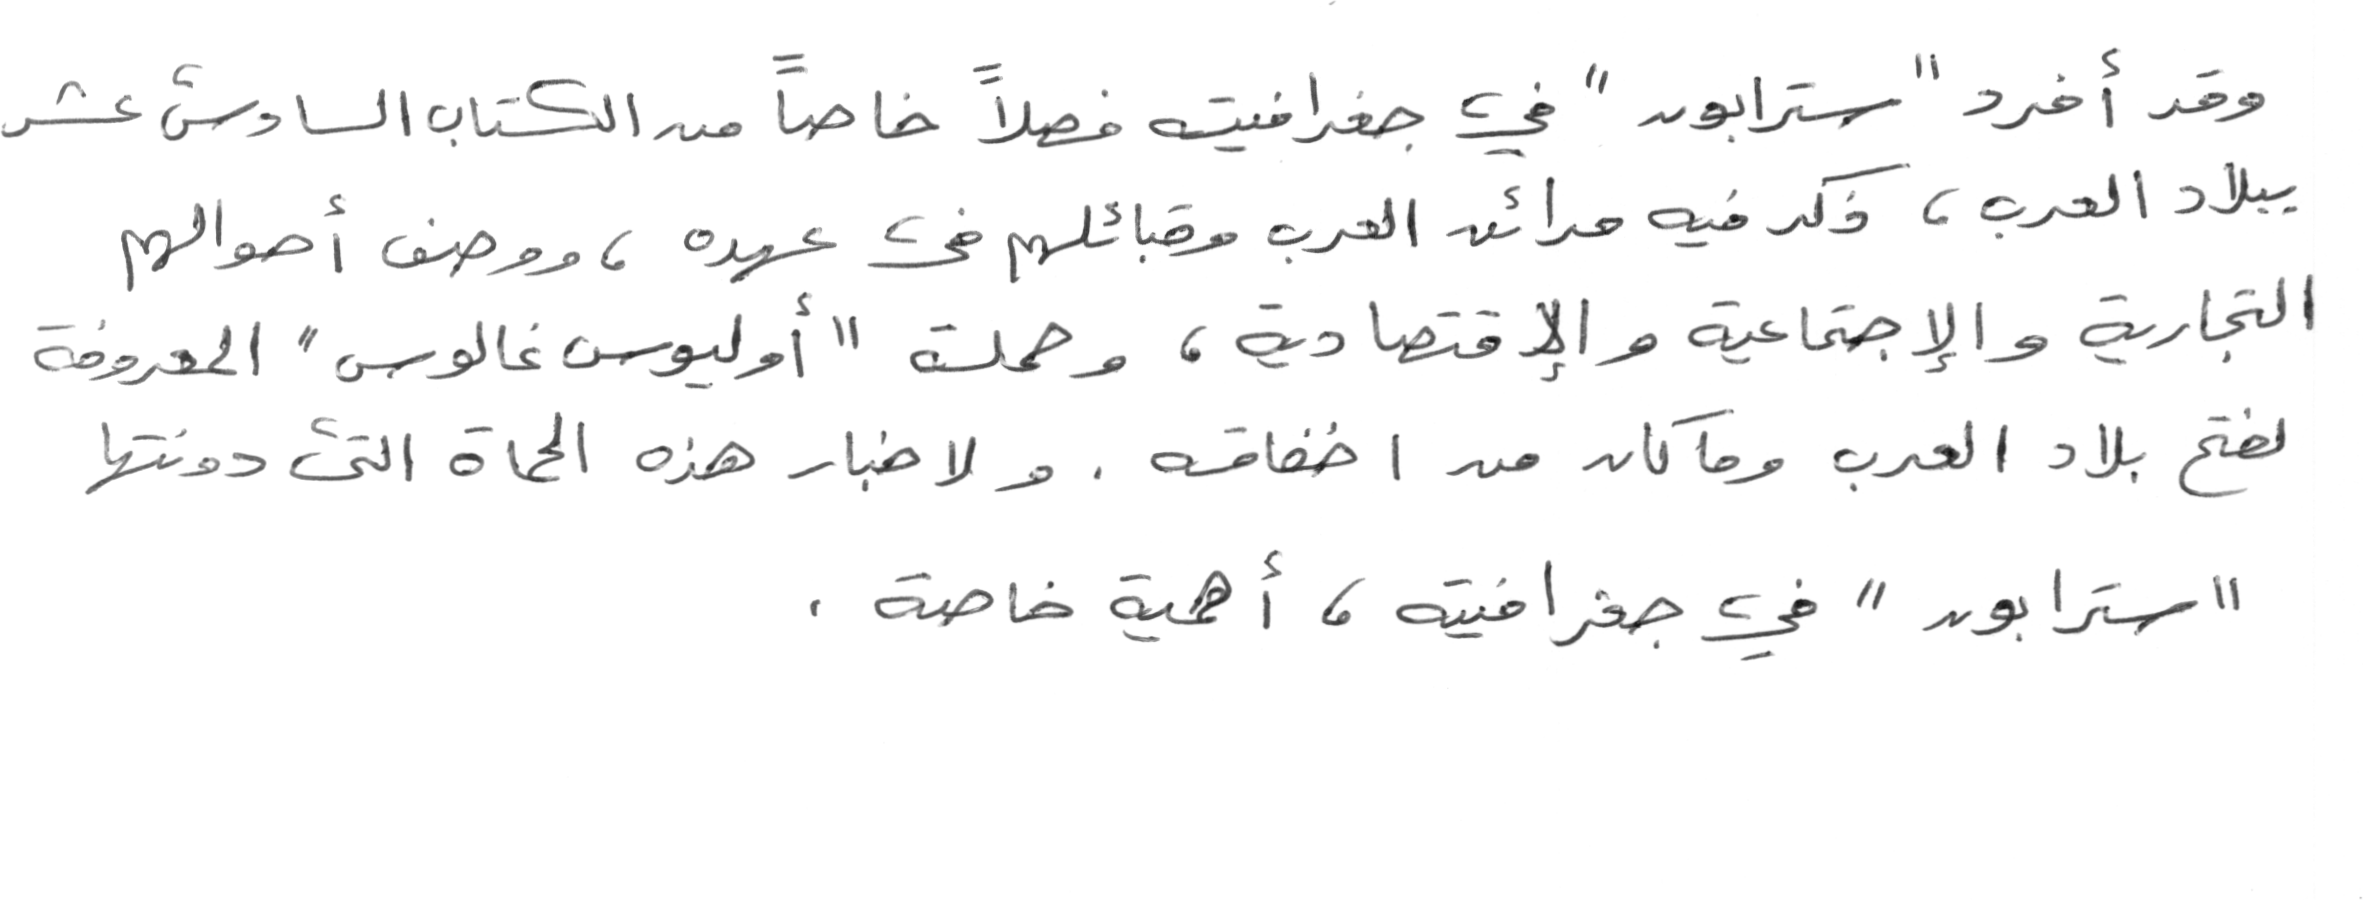 وقد أفرد "سترابون" في جغرافيته فصلاً خاصاً من الكتاب السادس عشر
ببلاد العرب، ذكر فيه مدائن العرب وقبائلهم في عهده، ووصف أحوالهم
التجارية والإجتماعية والإقتصادية، وحملة "أوليوس غالوس" المعروفة
لفتح بلاد العرب وما كان من اخفاقه. ولاخبار هذه الحملة التي دونتها
"سترابون" في جغرافيته، أهمية خاصة.